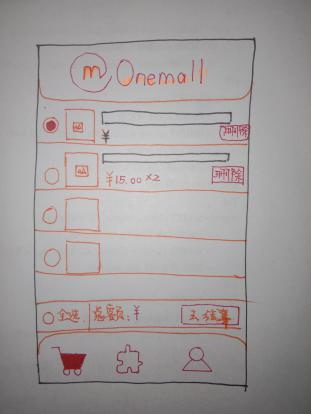 m Onemall
¥ 删除
¥15.00 ×2 删除
全选 总额:¥ 去结算